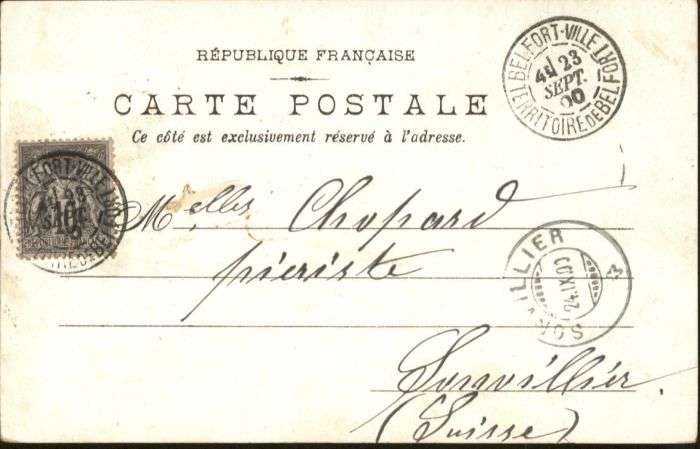 RÉPUBLIQUE FRANÇAISE
CARTE POSTALE
Ce côté est exclusivement réservé à l'adresse.
BELFORT-VILLE
4E 23
SEPT.
00
TERRITOIRE DE BELFORT
FORT-VILLE
10c
Melles Chopard
pieriste
SONVILLIER
24.IX.00
Sonvillier
(Suisse)